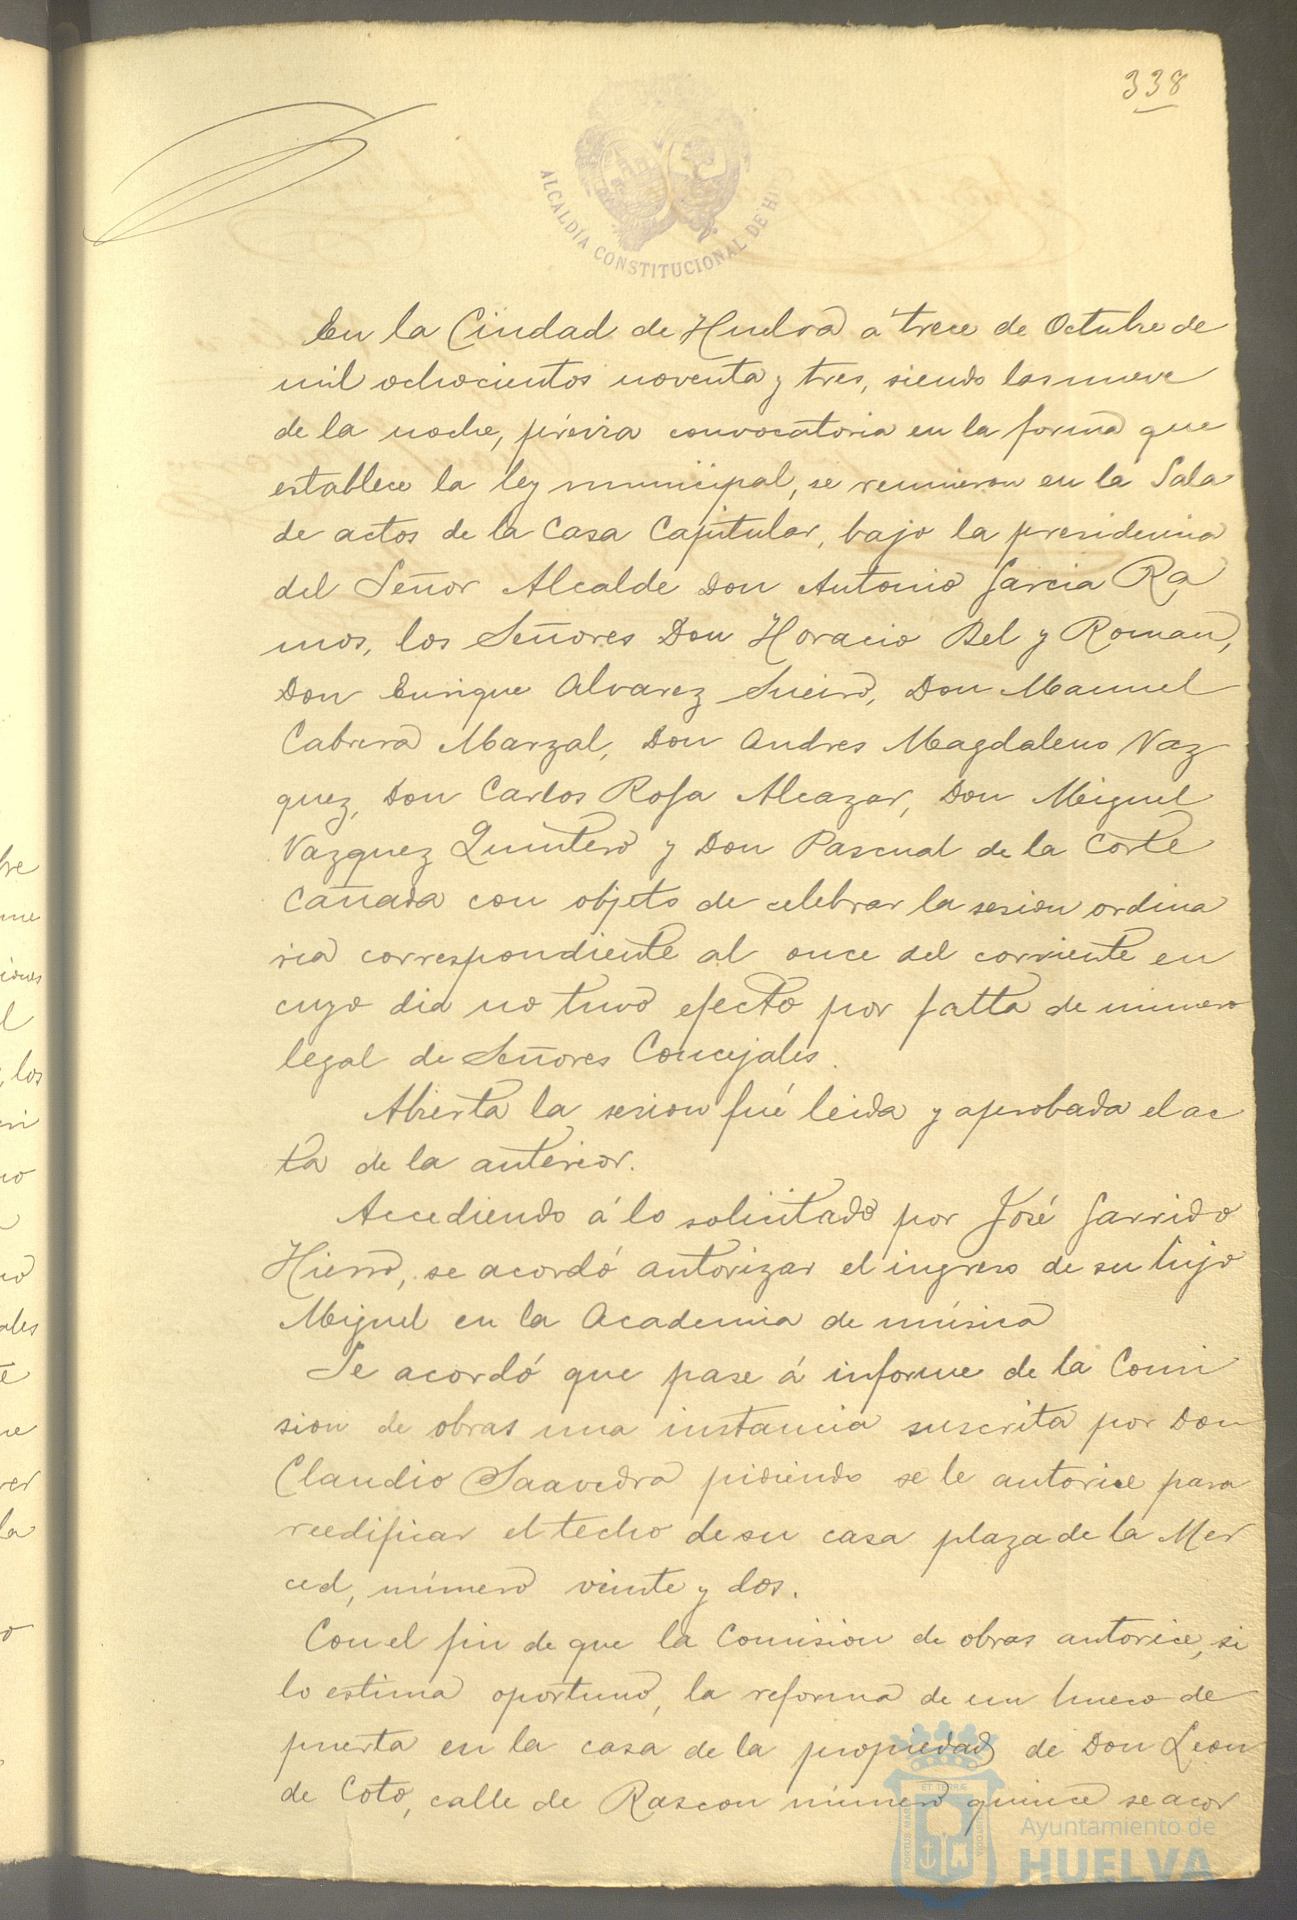 338
ALCALDÍA CONSTITUCIONAL DE HU
En la Ciudad de Huelva a trece de Octubre de
mil ochocientos noventa y tres, siendo las nueve
de la noche, prévia convocatoria en la forma que
establece la ley municipal, se reunieron en la Sala
de actos de la Casa Capitular, bajo la presidencia
del Señor Alcalde Don Antonio Garcia Ra
mos, los Señores Don Horacio Bel y Roman,
Don Enrique Alvarez Sueiro, Don Manuel
Cabrera Marzal, Don Andres Magdaleno Vaz
quez, Don Carlos Rofa Alcazar, Don Miguel
Vazquez Quintero y Don Pascual de la Corte
Cañada con objeto de celebrar la sesion ordina
ria correspondiente al once del corriente en
cuyo dia no tuvo efecto por falta de número
legal de Señores Concejales.
Abierta la sesion fué leida y aprobada el ac
ta de la anterior.
Accediendo á lo solicitado por José Garrido
Hierro, se acordó autorizar el ingreso de su hijo
Miguel en la Academia de música
Se acordó que pase á informe de la Comi
sion de obras una instancia suscrita por Don
Claudio Saavedra pidiendo se le autorice para
reedificar el techo de su casa plaza de la Mer
ced, número veinte y dos.
Con el fin de que la Comision de obras autorice, si
lo estima oportuno, la reforma de un hueco de
puerta en la casa de la propiedad de Don Leon
de Coto, calle de Rascon número quince se acor
Ayuntamiento de
HUELVA